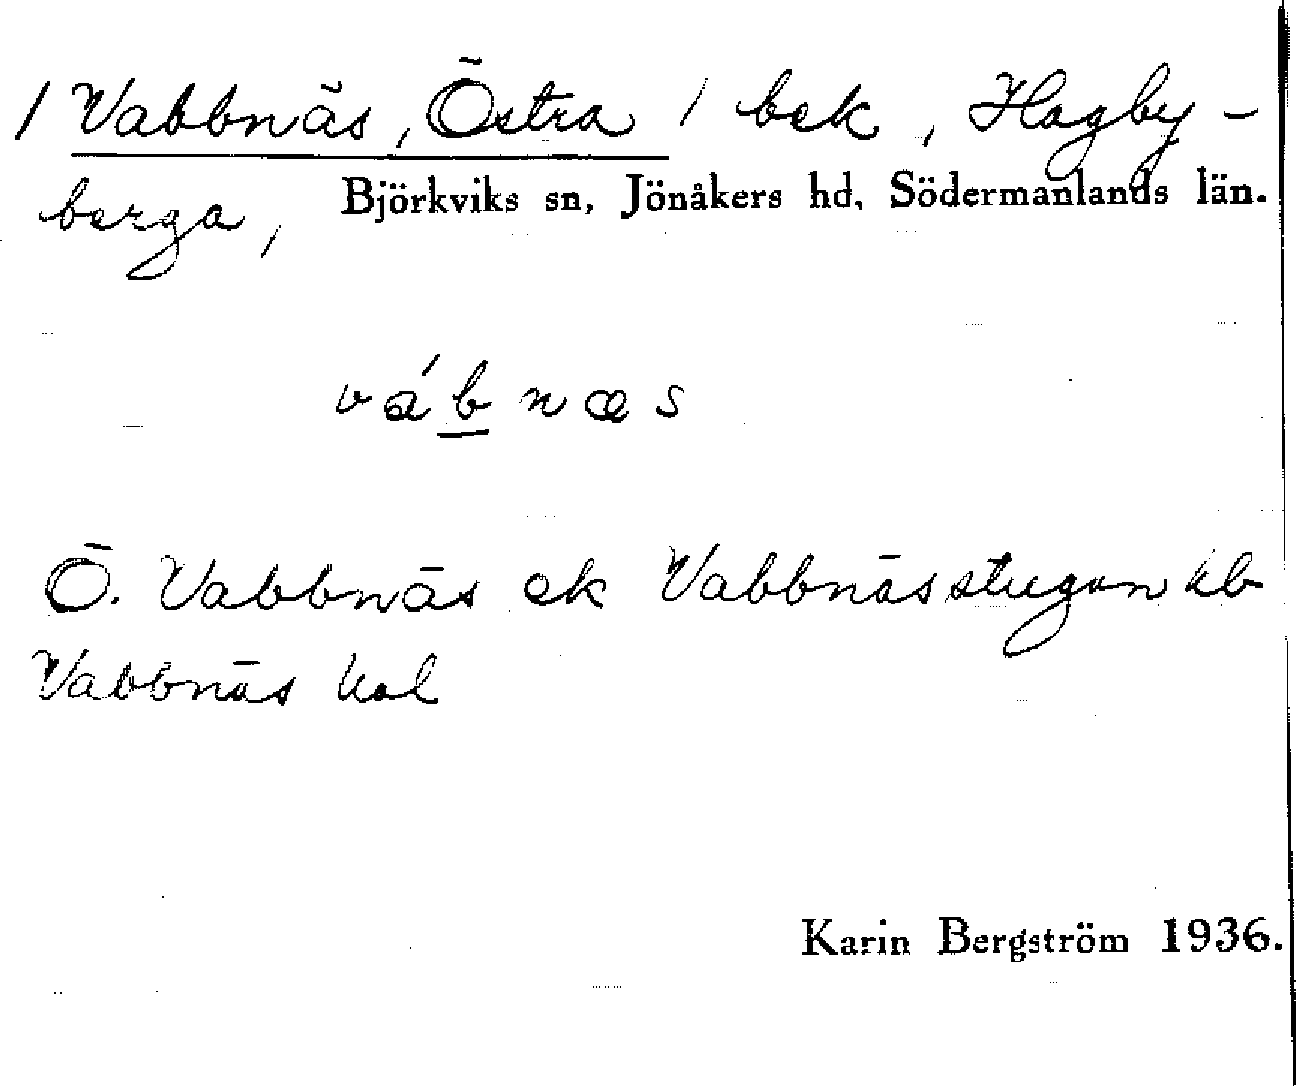 / Vabbnäs, Östra / bek, Hagby-
berga, Björkviks sn, Jönåkers hd, Södermanlands län.
vábnæs
Ö. Vabbnäs ek Vabbnässtugan hb
Vabbnäs hal
Karin Bergström 1936.